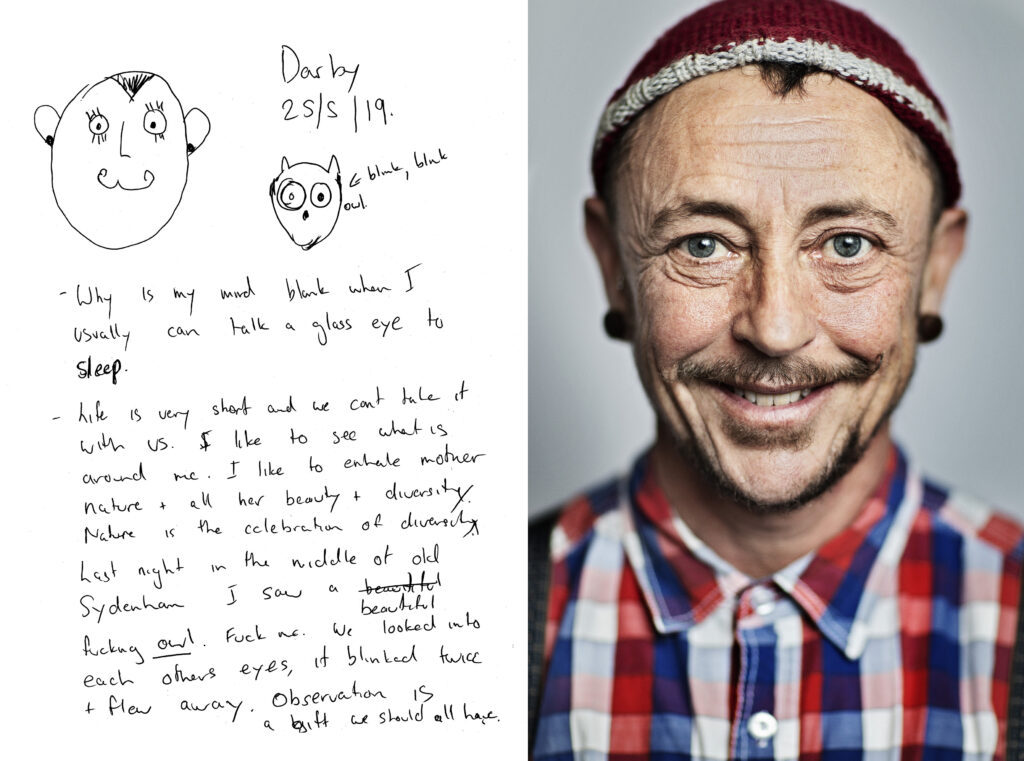 Darby
25/5/19.
← blink, blink
owl
- Why is my mind blank when I
usually can talk a glass eye to
sleep.
- Life is very short and we cant take it
with us. I like to see what is
around me. I like to enhale mother
nature + all her beauty + diversity.
Nature is the celebration of diversity.
Last night in the middle of old
Sydenham I saw a beautiful
beautiful
fucking owl. Fuck me. We looked into
each others eyes, it blinked twice
+ flew away. Observation is
a gift we should all have.